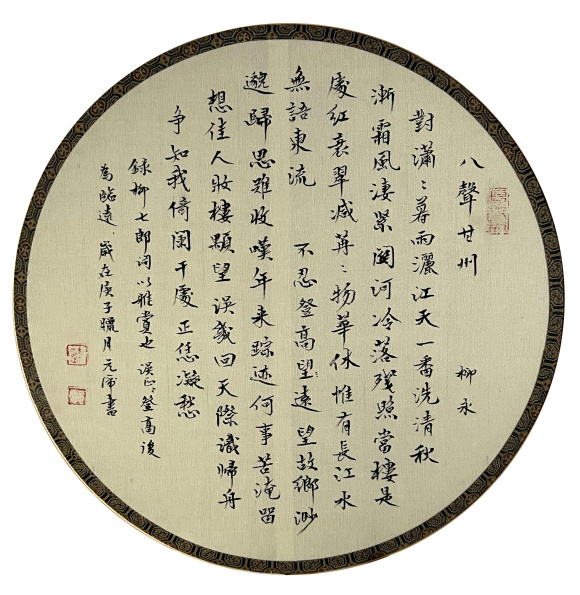 八聲甘州 柳永
對瀟〻暮雨灑江天一番洗清秋
漸霜風淒緊關河冷落殘照當樓是
處紅衰翠減苒〻物華休惟有長江水
無語東流 不忍登高望遠望故鄉渺
邈歸思難收嘆年來踪迹何事苦淹留
想佳人妝樓顒望誤幾回天際識歸舟
争知我倚闌干處正恁凝愁
録柳七郎詞以雅賞也 誤正〻登高後
為臨遠、歲在庚子臘月元沛書